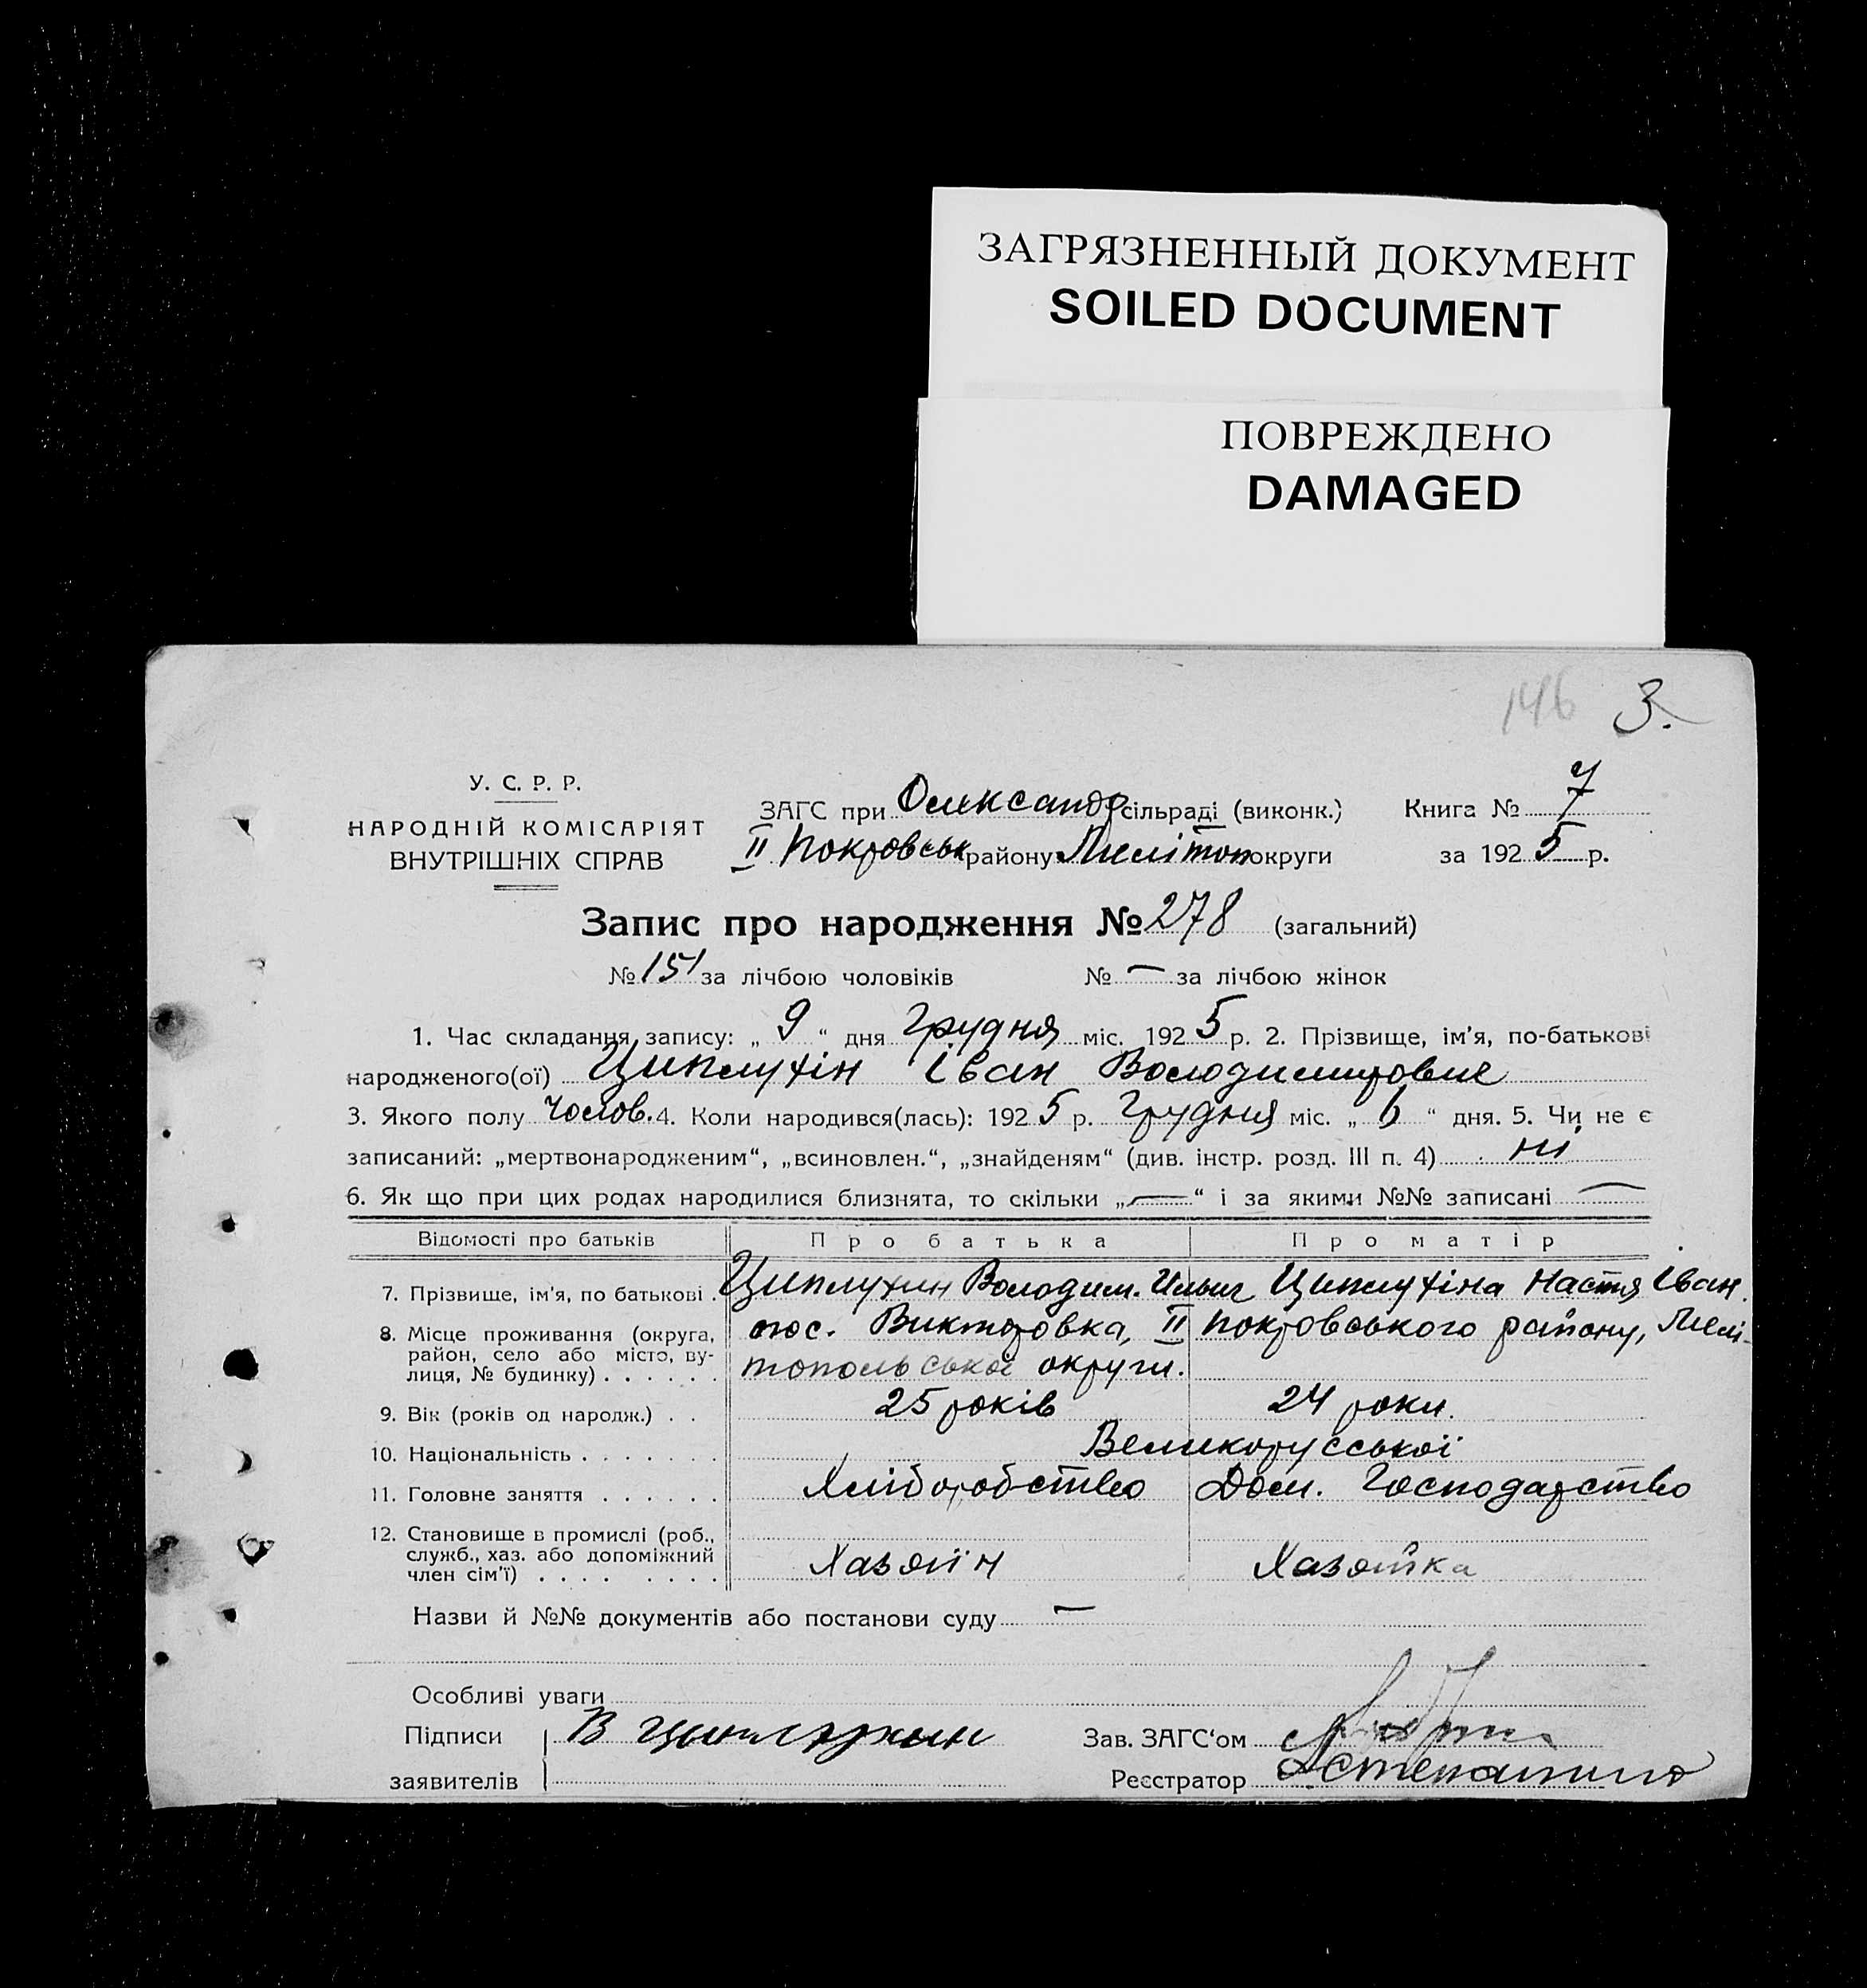 ЗАГРЯЗНЕННЫЙ ДОКУМЕНТ
SOILED DOCUMENT
ПОВРЕЖДЕНО
DAMAGED
146 3.
У. С. Р. Р.
НАРОДНІЙ КОМІСАРІЯТ
ВНУТРІШНІХ СПРАВ
ЗАГС при Олександр сільраді (виконк.)
ІІ Покровськ району Мелітоп округи
Книга № 7
за 1925 р.
Запис про народження № 278 (загальний)
№ 151 за лічбою чоловіків № — за лічбою жінок
1. Час складання запису: „ 9 “ дня Грудня міс. 1925 р. 2. Прізвище, ім'я, по-батькові
народженого(ої) Циплухін Іван Володимирович
3. Якого полу чолов. 4. Коли народився(лась): 1925 р. Грудня міс. „ 6 “ дня. 5. Чи не є
записаний: „мертвонародженим“, „всиновлен.“, „знайденям“ (див. інстр. розд. III п. 4) ні
6. Як що при цих родах народилися близнята, то скільки „—“ і за якими №№ записані —
Відомості про батьків Про батька Про матір
7. Прізвище, ім'я, по батькові . Циплухин Володим. Ильич Циплухіна Настя Іван.
8. Місце проживання (округа, район, село або місто, вулиця, № будинку) . . . . . . пос. Викторовка, ІІ Покровського району, Мелі-
топольської округи.
9. Вік (років од народж.) . . 25 років 24 роки.
10. Національність . . . . . . . Великоруської
11. Головне заняття . . . . . . Хліборобство Дом. Господарство
12. Становище в промислі (роб., служб., хаз. або допоміжний член сім'ї) . . . . . . . . Хазяїн Хазяйка
Назви й №№ документів або постанови суду —
Особливі уваги
Підписи В Циплухин Зав. ЗАГС‘ом
заявителів Реєстратор